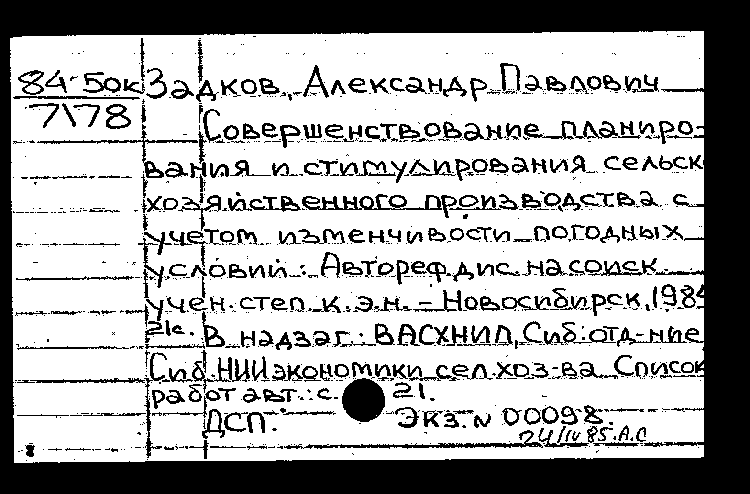 84-50к Задков, Александр Павлович
7\78
Совершенствование планиро-
вания и стимулирования сельск
хозяйственного производства с
учетом изменчивости погодных
условий: Автореф.дис. на соиск.
учен. степ. к.э.н. – Новосибирск, 1984
21с. В надзаг.: ВАСХНИЛ, Сиб. отд-ние
Сиб. НИИ экономики сел.хоз-ва Список
работ авт.: с. 21.
ДСП. Экз. N 00098.
24/IV 85. А.С